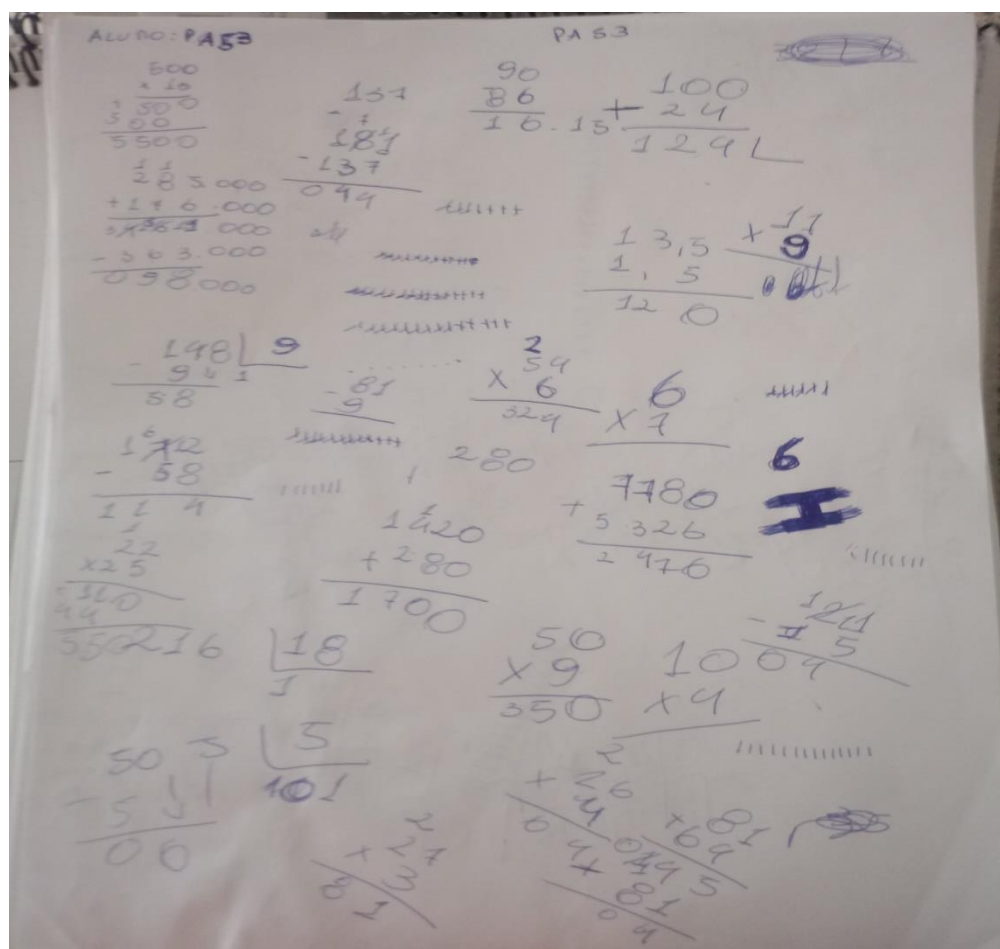 ALUNO: PA53
PA53
500
x 10
500
500
5500
137
181
-137
044
90
86
16.15
100
+ 24
124
285.000
+176.000
000
-363.000
098000
13,5
1,5
12 0
x 11
9
148 9
- 94 1
58
-81
9
2
54
x 6
324
6
x 7
6
172
- 58
114
280
1420
+ 280
1700
7780
+ 5326
2476
1
22
x25
110
44
550
216 18
1
50
x 9
350
100
x 4
- 15
04
505 5
- 5 101
00
2
27
x 3
81
2
+ 26
81
+64
145
81